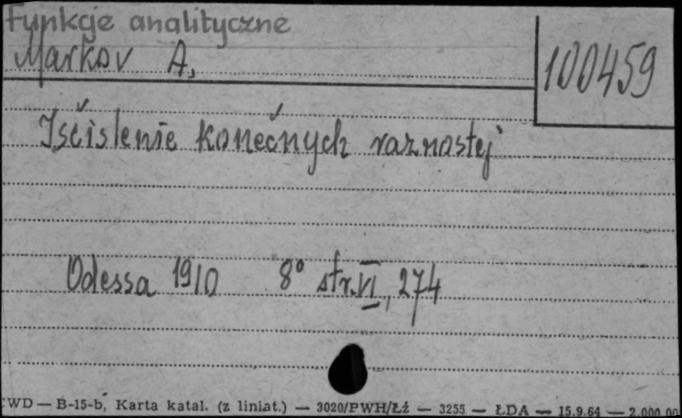 Funkcje analityczne
Markov A.
100459
Isčislenie konečnych raznostej
Odessa 1910 8° str. VI, 274
WD — B-15-b, Karta katal. (z liniat.) — 3020/PWH/Łź — 3255 — ŁDA — 15.9.64 — 2.000.00